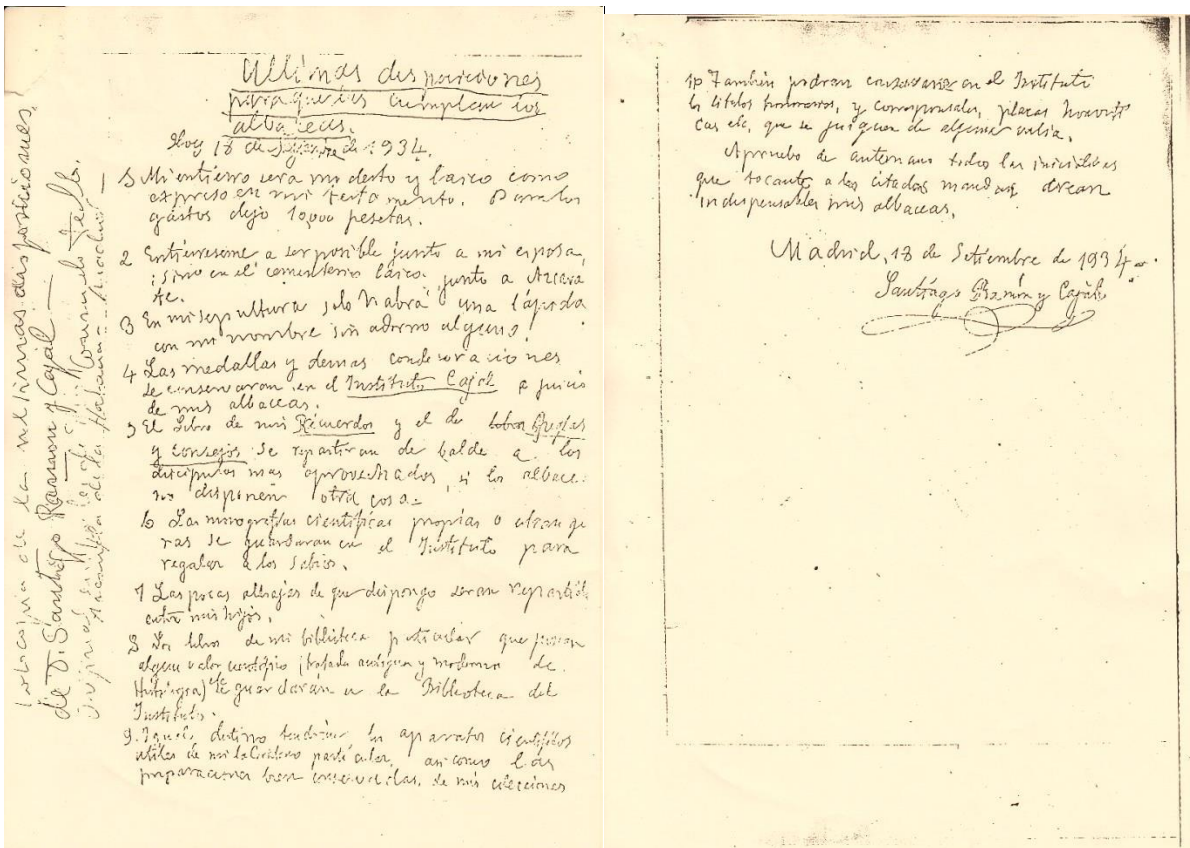 Ultimas disposiciones
para que las cumplan los
albaceas.
Hoy 18 de de 1934.
1 Mi entierro será modesto y laico como
expreso en mi testamento. Para los
gastos dejo 10,000 pesetas.
2 Entierreseme a ser posible junto a mi esposa,
i sino en el cementerio laico, junto a Azcara
te.
3 En mi sepultura solo habrá una lápida
con mi nombre sin adorno alguno!
4 Las medallas y demas condecoraciones
se conservaran en el Instituto Cajal a juicio
de mis albaceas.
5 El libro de mis Recuerdos y el de Reglas
y consejos se repartiran de balde a los
discipulos mas aprovechados, si los albacea
no disponen otra cosa=
6 Las monografias cientificas propias o extrange
ras se guardaran en el Instituto para
regalar a los sabios.
7 Las pocas alhajas de que dispongo seran repartid
entre mis hijos.
8 Los libros de mi biblioteca particular que posean
algun valor cientifico (tratados antiguos y modernos de
Histologia) se guardarán en la Biblioteca del
Instituto.
9. Igual destino tendrán los aparatos cientificos
utiles de mi laboratorio particular, asi como las
preparaciones bien conservadas, de mis colecciones
de las ultimas disposiciones,
de D. Santiago Ramon y Cajal —
10 Tambien podran conservarse en el Instituto
los titulos honorarios, y corresponsales, placas honorifi
cas etc, que se juzguen de alguna valia.
Apruebo de antemano todas las iniciativas
que tocante a las citadas mandas crean
indispensables mis albaceas.
Madrid, 18 de Setiembre de 1934.
Santiago Ramón y Cajal